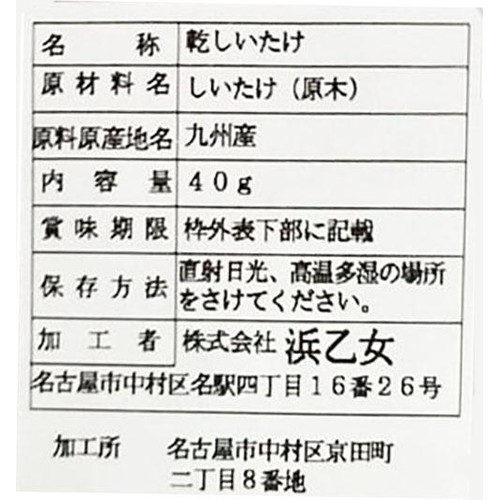 名称 乾しいたけ
原材料名 しいたけ（原木）
原料原産地名 九州産
内容量 40g
賞味期限 枠外表下部に記載
保存方法 直射日光、高温多湿の場所
をさけてください。
加工者 株式会社 浜乙女
名古屋市中村区名駅四丁目16番26号
加工所 名古屋市中村区京田町
二丁目8番地